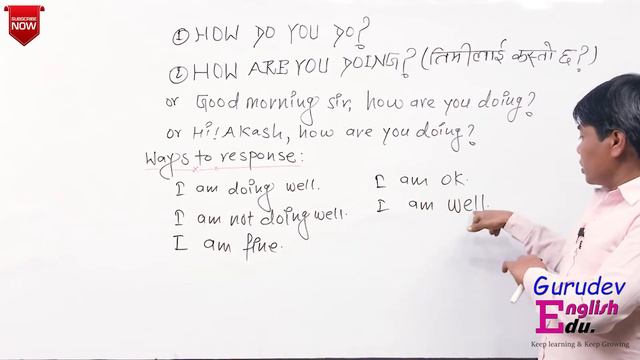 SUBSCRIBE
NOW
① HOW DO YOU DO?
② HOW ARE YOU DOING? (तिमीलाई कस्तो छ?)
or Good morning sir, how are you doing?
or Hi! Akash, how are you doing?
Ways to response:
I am doing well.
I am not doing well.
I am fine.
I am ok.
I am well.
Gurudev
English
Edu.
Keep learning & Keep Growing